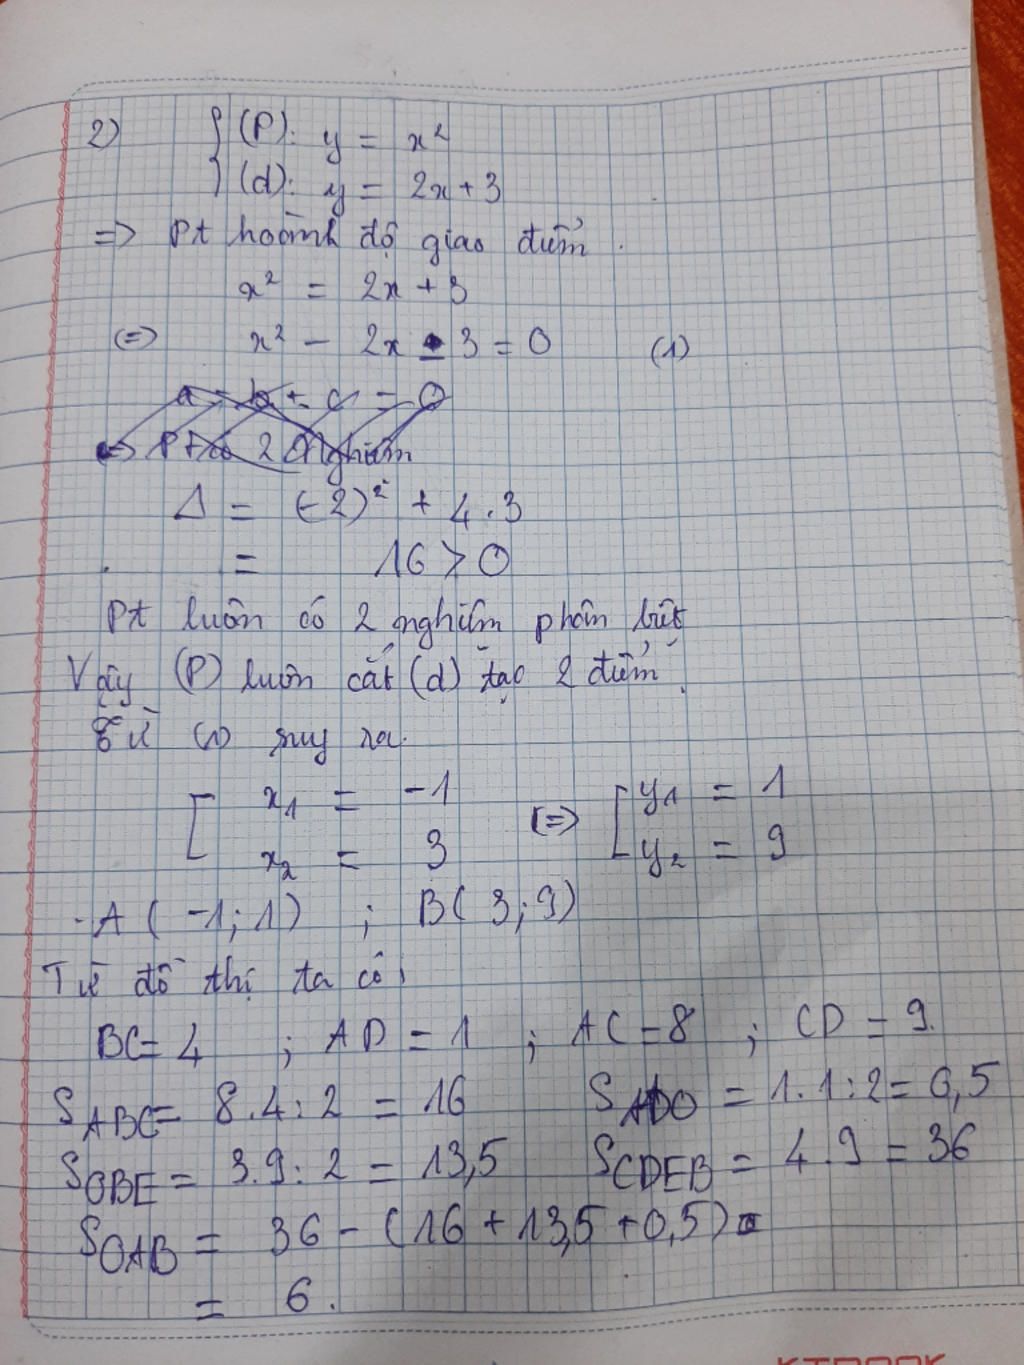 2) { (P): y = x²
(d): y = 2x + 3
=> Pt hoành độ giao điểm.
x² = 2x + 3
(=) x² - 2x - 3 = 0 (1)
Δ = (-2)² + 4.3
= 16 > 0
Pt luôn có 2 nghiệm phân biệt
Vậy (P) luôn cắt (d) tạo 2 điểm.
Từ (1) suy ra.
[ x₁ = -1 (=> [ y₁ = 1
x₂ = 3 y₂ = 9
A ( -1; 1) ; B( 3; 9)
Từ đồ thị ta có:
BC = 4 ; AD = 1 ; AC = 8 ; CD = 9.
S_ABC = 8.4:2 = 16 S_ADO = 1.1:2 = 0,5
S_OBE = 3.9:2 = 13,5 S_CDEB = 4.9 = 36
S_OAB = 36 - (16 + 13,5 + 0,5)
= 6.